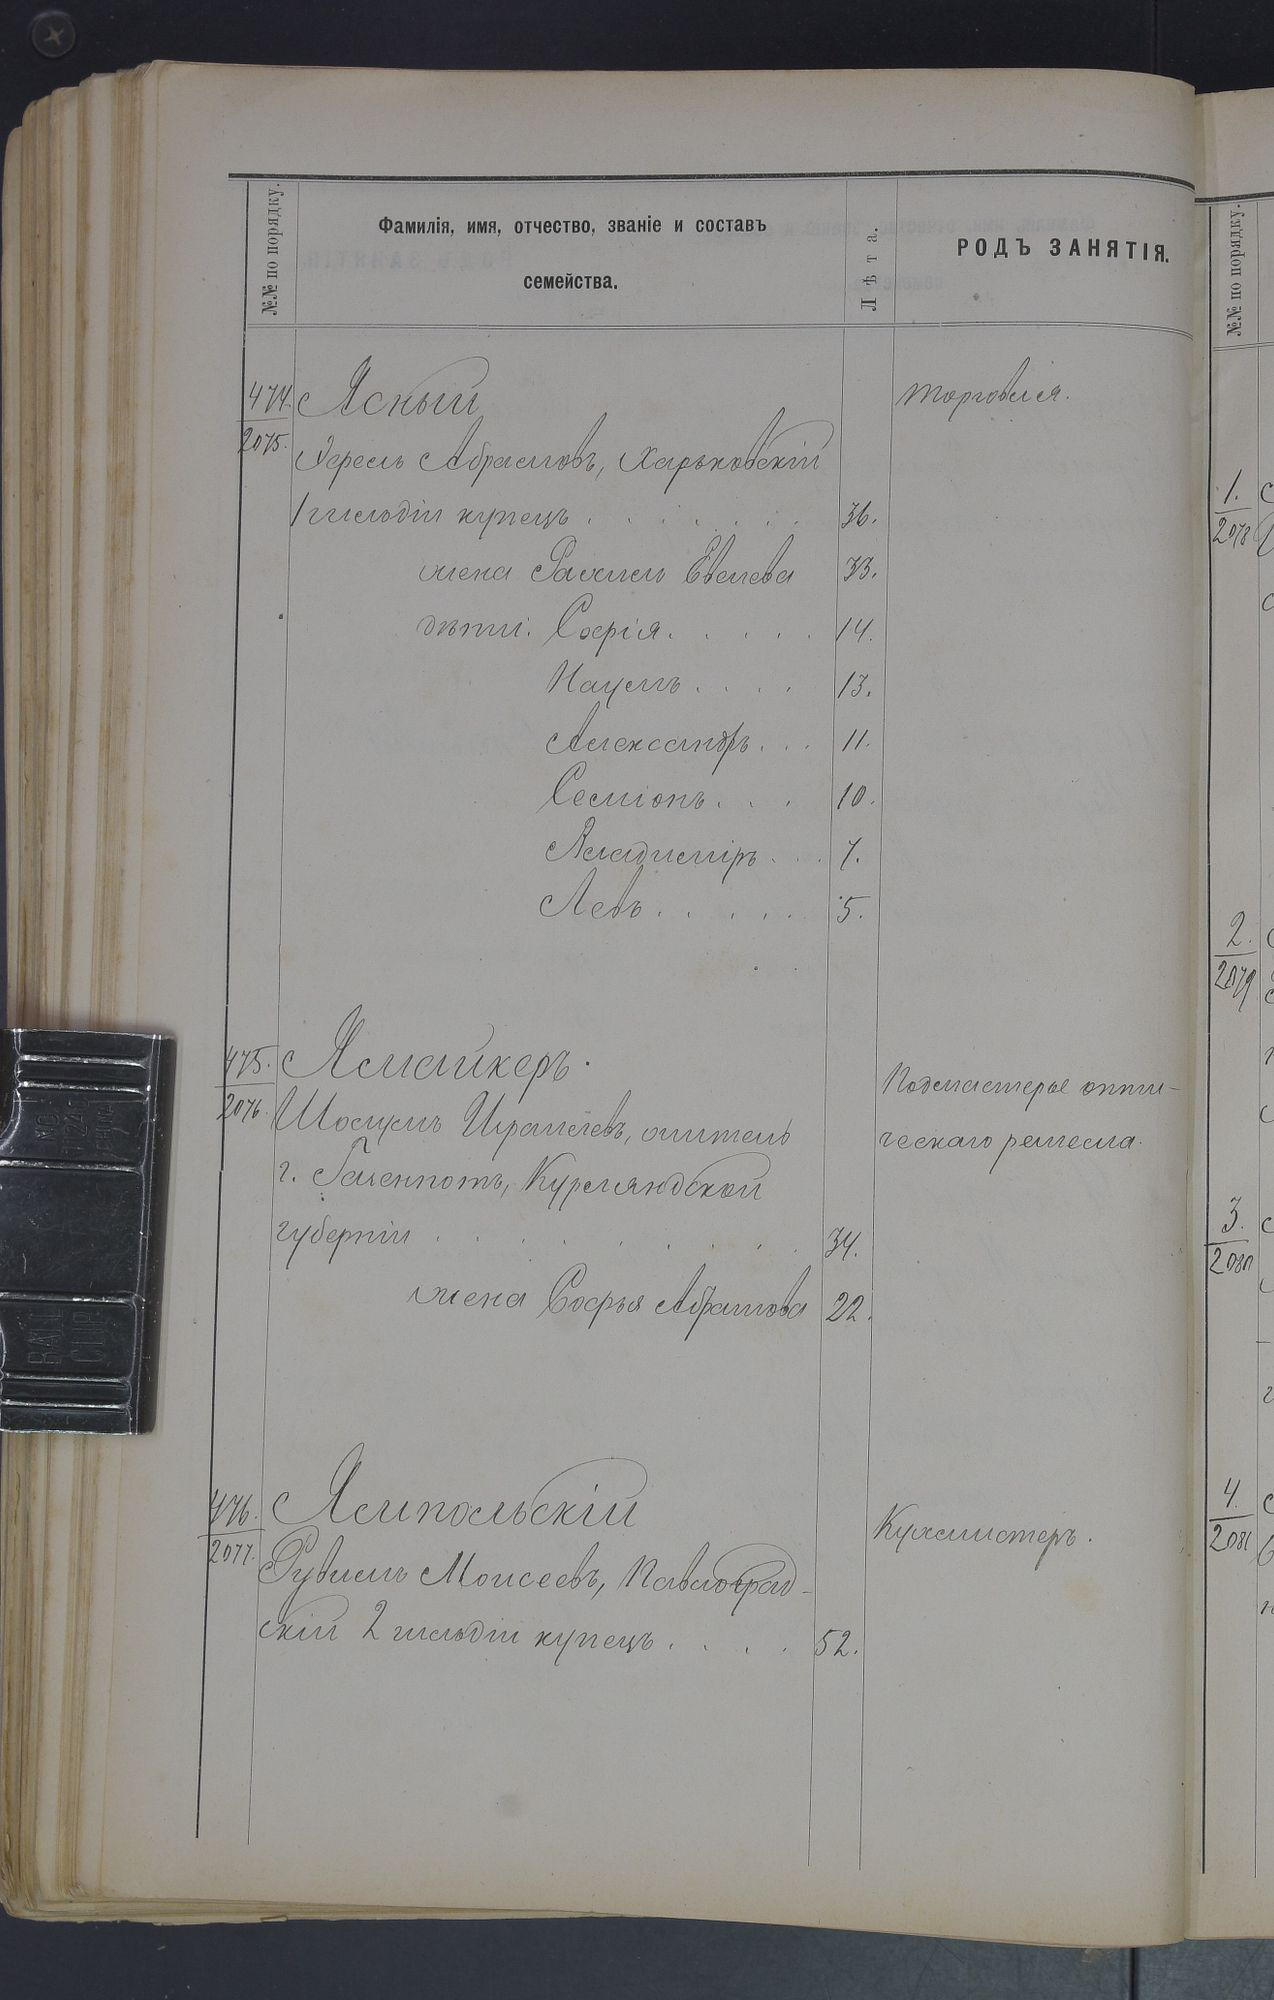 №№ по порядку.
Фамилія, имя, отчество, званіе и составъ
семейства.
Лѣта.
РОДЪ ЗАНЯТІЯ.
474. Ясный Торговля.
2075.
Абрамовъ, Харьковскій
1 гильдіи купецъ . . . . . . . 36.
жена Рахиль Евелева 33.
дѣти: Софія . . . . . 14.
Наумъ . . . . 13.
Александръ . . . 11.
Семіонъ . . . 10.
Владиміръ . . . 7.
Левъ . . . . . 5.
475. Ямайкеръ. Подмастерье опти-
2076. Шоломъ Израилевъ, житель ческаго ремесла.
г. Газенпотъ, Курляндской
губерніи . . . . . . . . 34.
жена Софья Абрамова 22.
476. Ямпольскій Кухмистеръ.
2077. Рувимъ Моисеевъ, Павлоград-
скій 2 гильдіи купецъ . . . . 52.
№№ по порядку.
1.
2078
2.
2079
3.
2080
4.
2081